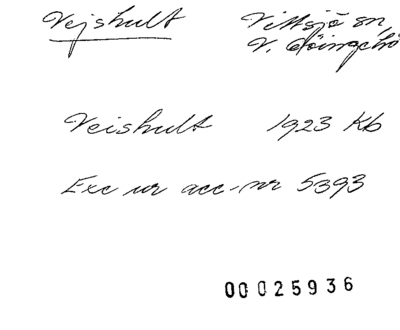 Vejshult Vittsjö sn,
V. Göingehd
Veishult 1923 Kb
Exc ur acc-nr 5393
00025936